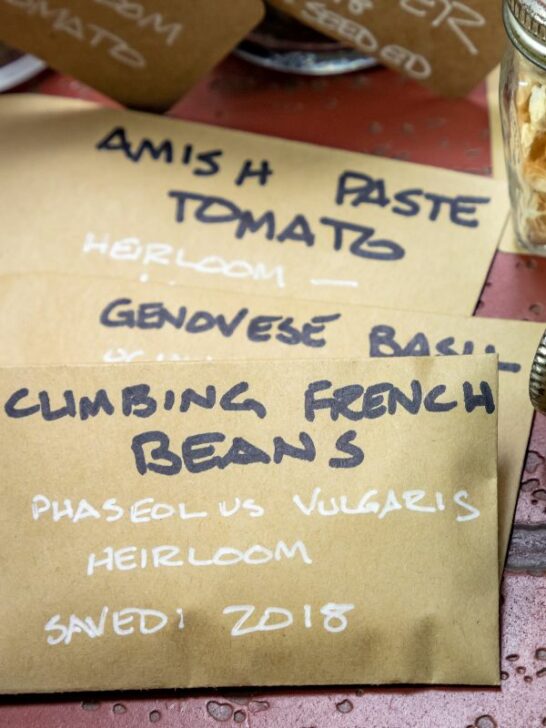 TOMATO
SEEDED
AMISH PASTE
TOMATO
HEIRLOOM —
GENOVESE BASIL
CLIMBING FRENCH
BEANS
PHASEOLUS VULGARIS
HEIRLOOM
SAVED: 2018